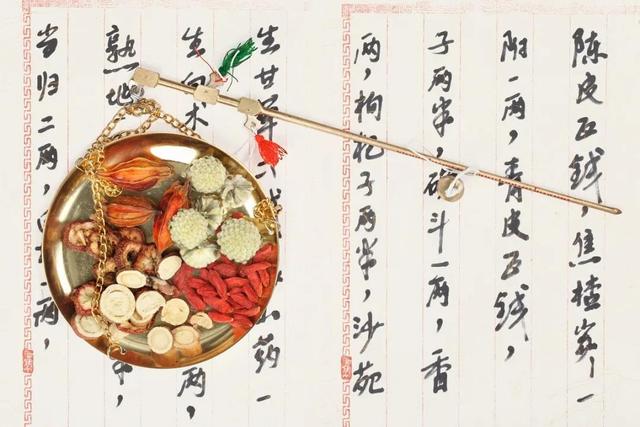 当归二两，一两，
熟地，
生白术两，
生甘草山药一
两，枸杞子两半，沙苑
子两半，斗一两，香
附一两，青皮五钱，
陈皮五钱，焦楂一